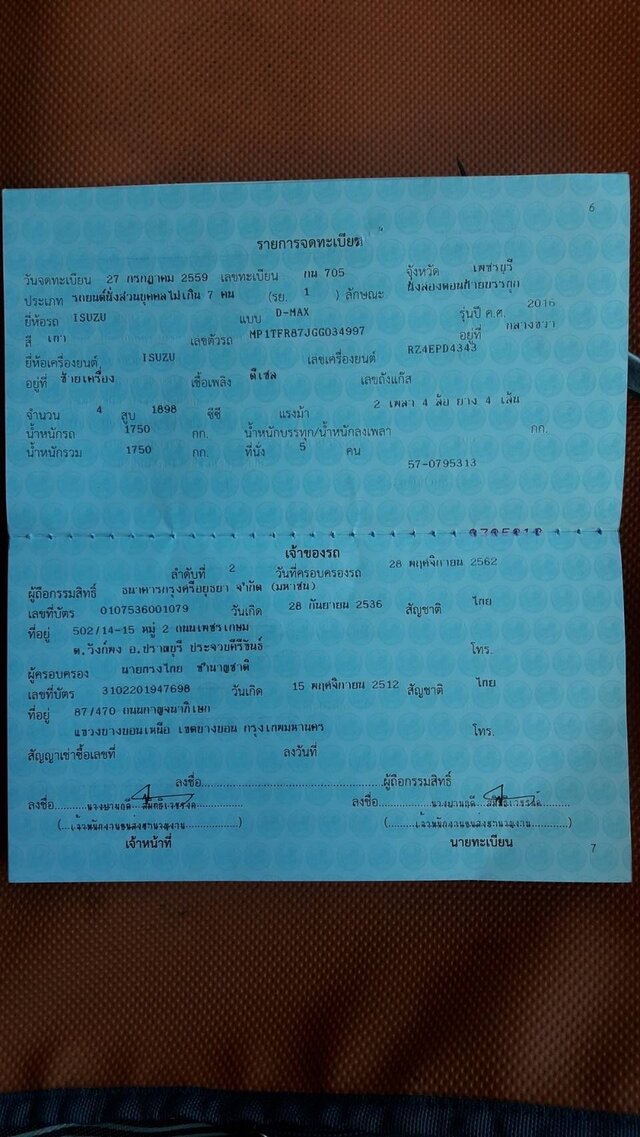 6
รายการจดทะเบียน
วันจดทะเบียน 27 กรกฎาคม 2559 เลขทะเบียน กน 705 จังหวัด เพชรบุรี
ประเภท รถยนต์นั่งส่วนบุคคลไม่เกิน 7 คน (รย. 1 ) ลักษณะ นั่งสองตอนท้ายบรรทุก
ยี่ห้อรถ ISUZU แบบ D-MAX รุ่นปี ค.ศ. 2016
สี เทา เลขตัวรถ MP1TFR87JGG034997 อยู่ที่ กลางขวา
ยี่ห้อเครื่องยนต์ ISUZU เลขเครื่องยนต์ RZ4EPD4343
อยู่ที่ ซ้ายเครื่อง เชื้อเพลิง ดีเซล เลขถังแก๊ส
จำนวน 4 สูบ 1898 ซีซี แรงม้า 2 เพลา 4 ล้อ ยาง 4 เส้น
น้ำหนักรถ 1750 กก. น้ำหนักบรรทุก/น้ำหนักลงเพลา กก.
น้ำหนักรวม 1750 กก. ที่นั่ง 5 คน
57-0795313
เจ้าของรถ
ลำดับที่ 2 วันที่ครอบครองรถ 28 พฤศจิกายน 2562
ผู้ถือกรรมสิทธิ์ ธนาคารกรุงศรีอยุธยา จำกัด (มหาชน)
เลขที่บัตร 0107536001079 วันเกิด 28 กันยายน 2536 สัญชาติ ไทย
ที่อยู่ 502/14-15 หมู่ 2 ถนนเพชรเกษม
ต.วังก์พง อ.ปราณบุรี ประจวบคีรีขันธ์ โทร.
ผู้ครอบครอง นายทรงไทย ชำนาญชาติ
เลขที่บัตร 3102201947698 วันเกิด 15 พฤศจิกายน 2512 สัญชาติ ไทย
ที่อยู่ 87/470 ถนนกาญจนาภิเษก
แขวงบางบอนเหนือ เขตบางบอน กรุงเทพมหานคร โทร.
สัญญาเช่าซื้อเลขที่ ลงวันที่
ลงชื่อ ผู้ถือกรรมสิทธิ์
ลงชื่อ ลงชื่อ
(เจ้าพนักงานขนส่งชำนาญงาน) (เจ้าพนักงานขนส่งชำนาญงาน)
เจ้าหน้าที่ นายทะเบียน
7